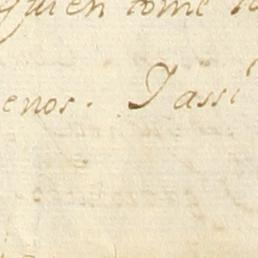 Quien tome
enos. I assi